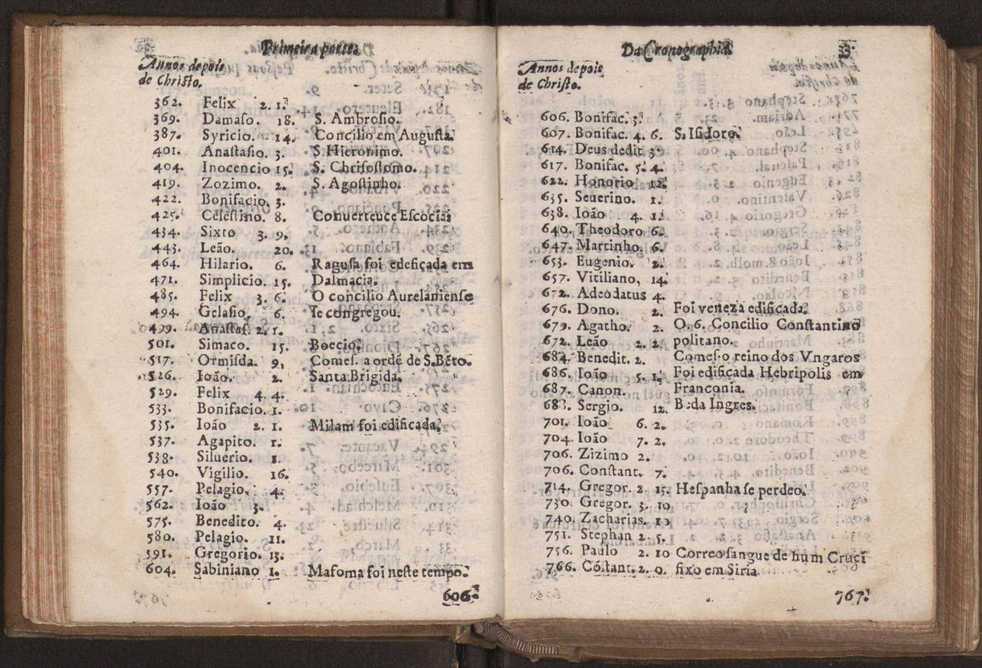 Primeira parte
Annos depois
de Christo.
362. Felix 2. 1.
369. Damaso. 18. S. Ambrosio.
387. Syricio. 14. Concilio em Augusta.
401. Anastasio. 3. S. Hieronimo.
404. Inocencio 15. S. Chrisostomo.
419. Zozimo. 2. S. Agostinho.
422. Bonifacio. 3.
425. Celestino. 8. Conuerteuce Escocia.
434. Sixto 3. 9.
443. Leão. 20.
464. Hilario. 6. Ragusa foi edeficada em
471. Simplicio. 15. Dalmacia.
485. Felix 3. 6. O concilio Aurelaniense
494. Gelasio. 6. se congregou.
499. Anastas. 2. 1.
501. Simaco. 15. Boecio.
517. Ormisda. 9. Comes. a ordē de S. Bēto.
526. Ioão. 2. Santa Brigida.
529. Felix 4. 4.
533. Bonifacio. 1.
535. Ioão 2. 1. Milam foi edificada.
537. Agapito. 1.
538. Siluerio. 1.
540. Vigilio. 16.
557. Pelagio. 4.
562. Ioão 3.
575. Benedito. 4.
580. Pelagio. 11.
591. Gregorio. 13.
604. Sabiniano 1. Mafoma foi neste tempo.
606.
Da Cronographia 33.
Annos depois
de Christo.
606. Bonifac. 3.
607. Bonifac. 4. 6. S. Isidoro.
614. Deus dedit 3.
617. Bonifac. 5. 4.
622. Honorio 12.
635. Seuerino. 1.
638. Ioão 4. 1.
640. Theodoro 6.
647. Martinho. 6.
653. Eugenio. 2.
657. Vitiliano, 14.
672. Adeodatus 4.
676. Dono. 2. Foi veneza edificada.
679. Agatho. 2. O. 6. Concilio Constantino
672. Leão 2. 2. politano.
684. Benedit. 2. Comes. o reino dos Vngaros
686. Ioão 5. 1. Foi edificada Hebripolis em
687. Canon. Franconia.
688. Sergio. 12. Beda Ingres.
701. Ioão 6. 2.
704. Ioão 7. 2.
706. Zizimo 2.
706. Constant. 7.
714. Gregor. 2. 15. Hespanha se perdeo.
730. Gregor. 3. 10.
740. Zacharias. 10
751. Stephan 2. 5.
756. Paulo 2. 10 Correo sangue de hum Cruci
766. Cóstant. 2. 0. fixo em Siria.
767.